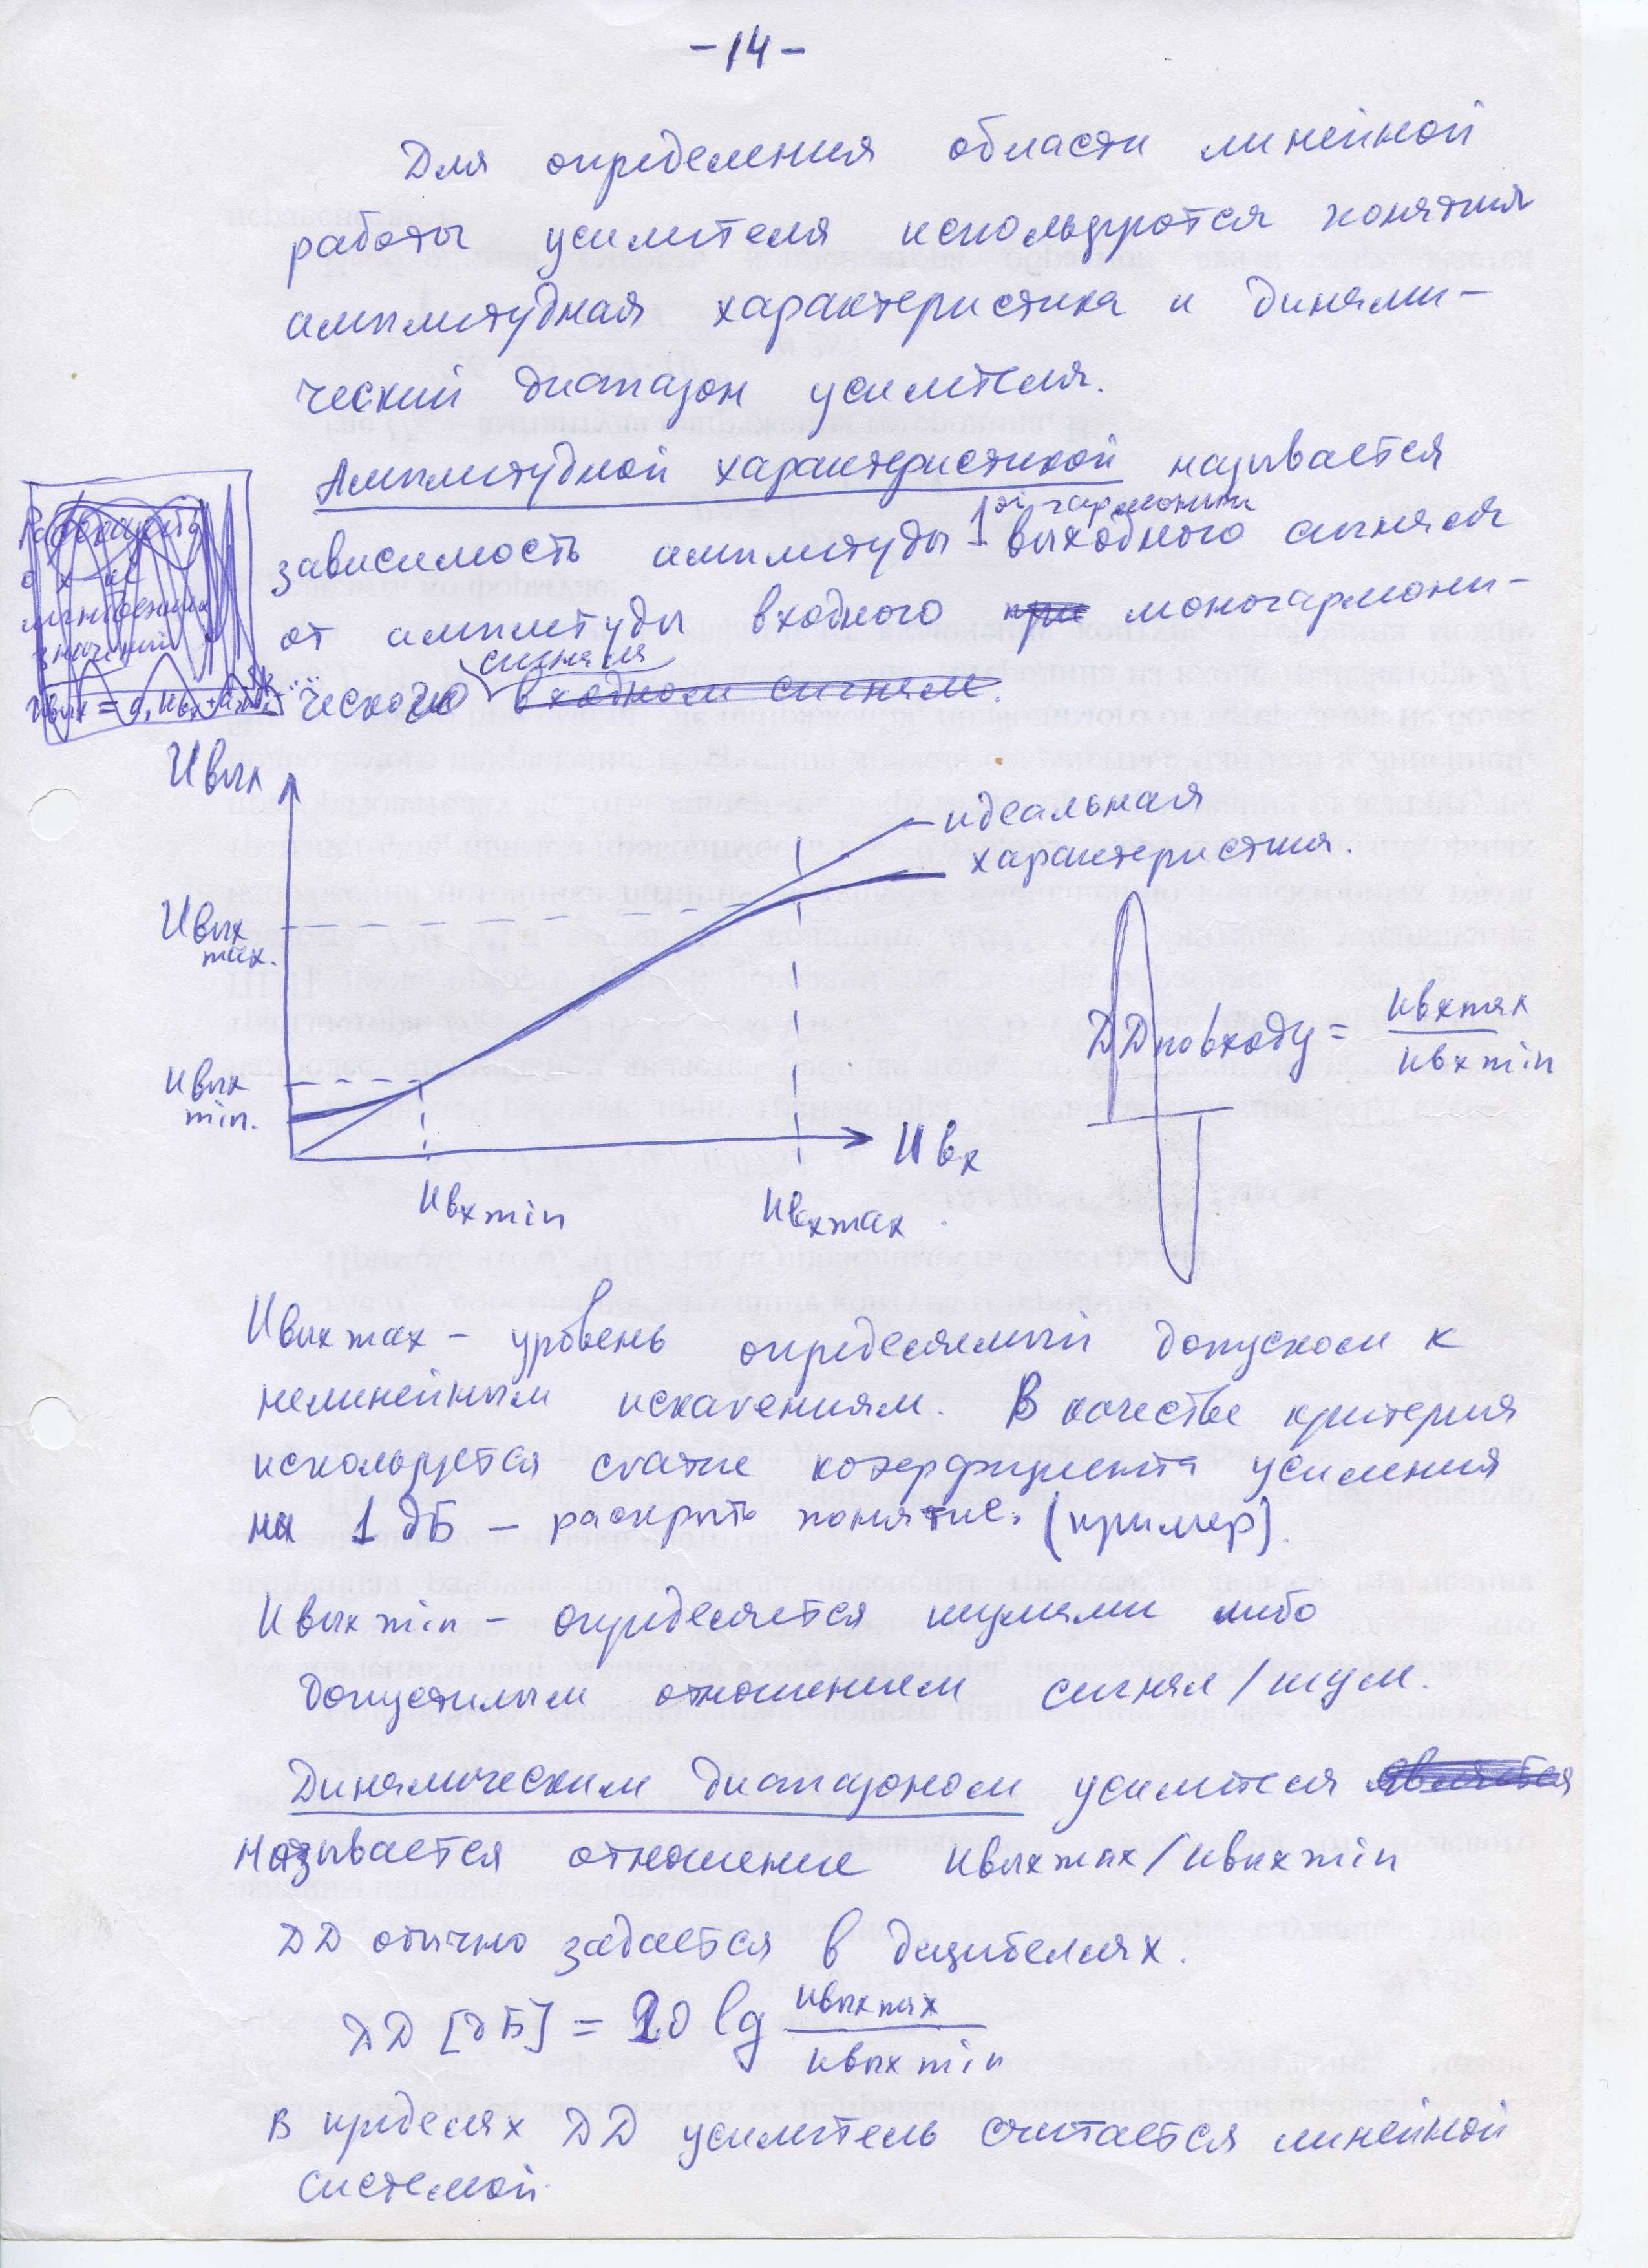 -14-
Для определения области линейной
работы усилителя используются понятия
амплитудная характеристика и динами-
ческий диапазон усилителя.
Амплитудной характеристикой называется
1ой гармоники
зависимость амплитуды выходного сигнала
от амплитуды входного при моногармони-
сигнала
ческого входном сигнале.
мгновенных
значений
Uвых
идеальная
характеристика.
Uвых
max.
DD по входу = Uвх max / Uвх min
Uвых
min.
Uвх
Uвх min
Uвх max.
Uвых max - уровень определяемый допуском к
нелинейным искажениям. В качестве критерия
используется сжатие коэффициента усиления
на 1 дБ - раскрыть понятие. (пример).
Uвых min - определяется шумами либо
допустимым отношением сигнал/шум.
Динамическим диапазоном усилителя является
называется отношение Uвых max / Uвых min
DD обычно задается в децибелах.
DD [дБ] = 20 lg Uвых max / Uвых min
В пределах DD усилитель считается линейной
системой.